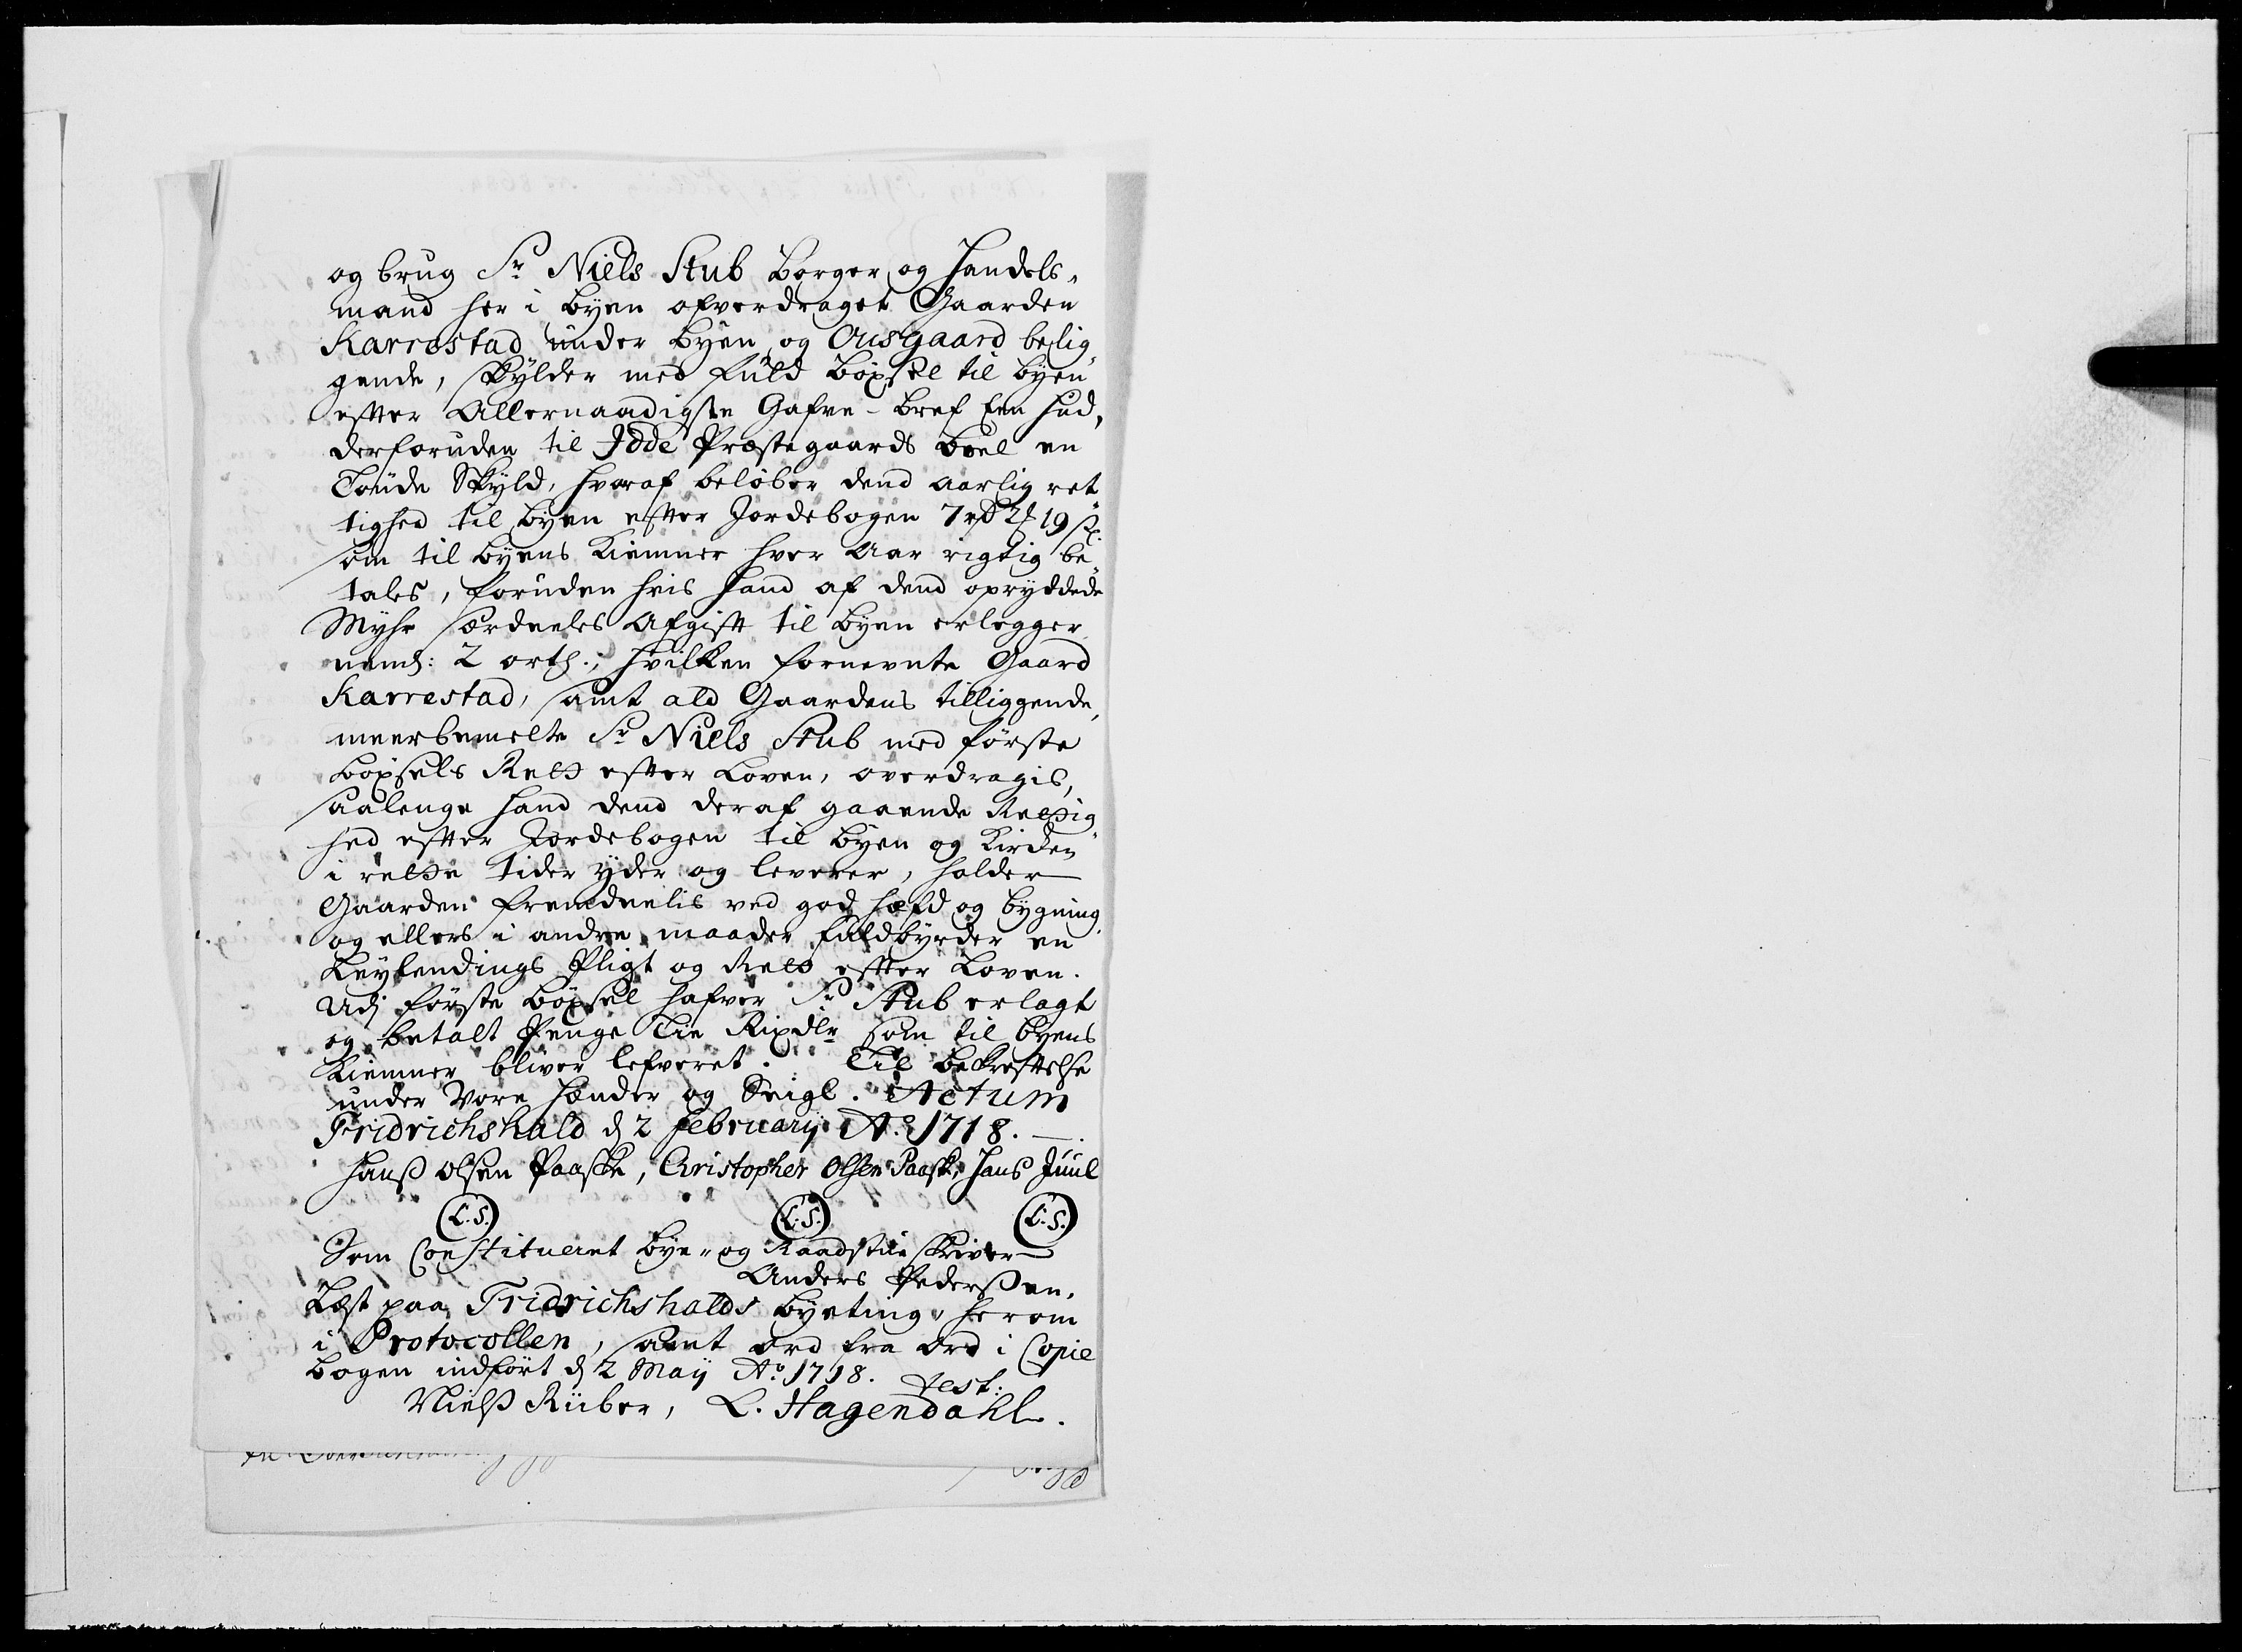 og brug Sr Niels Stub Borger og Handels-
mand her i byen ofverdraget Gaarden
Karrestad under byen og Ousgaard belig-
gende, skylder med fuld böxsel til byen
efter Allernaadigste Gafve-bref Een Hud,
derforuden til Idde Præstegaards boel en
Tönde Skyld, hvoraf beløber dend aarlig ret-
tighed til byen efter Jordebogen 7 rd 2 ß 19 sk:
som til byens Kiemner hver Aar rigtig be-
tales, foruden hvis hand af dend opryddede
Myhr særdeeles Afgift til byen erlegger
neml: 2 orth.; hvilken fornevnte Gaard
Karrestad, samt ald Gaardens tilliggende,
meerbemelte Sr Niels Stub med første
böxsels Rett efter Loven, overdragis,
saalenge hand dend deraf gaaende Rettig-
hed efter Jordebogen til byen og Kircken
i rette tider yder og leverer, holder
Gaarden fremdeelis ved god hæfd og bygning
og ellers i andre maader fuldbyrder en
Leylendings Pligt og Rett efter Loven.
Udj første böxsel hafver Sr Stub erlagt
og betalt Penge Tie Rixdlr som til byens
Kiemner bliver lefveret. Til bekreftelse
under Vore hænder og Seigl. Actum
Fridrichshald d 2 februarij Ao 1718.
Hanß Olsen Paaske, Christopher Olsen Paaske, Hans Juul
(L.S.) (L.S.) (L.S.)
Som Constitueret bye- og Raadstueskriver
Anders Pederßen.
Læst paa Fridrichshalds byeting, herom
i Protocollen, samt ord fra ord i Copie
bogen indført d 2 Maij Ao 1718. test:
Nielß Riiber, L. Hagendahl.